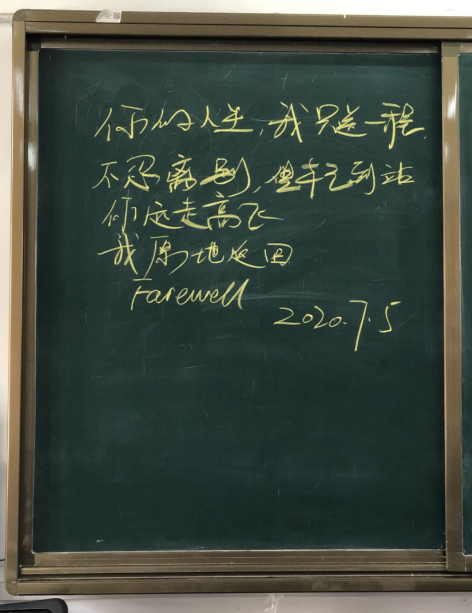 你的人生,我只送一程.
不忍离别,但车已到站
你远走高飞
我原地返回
Farewell
2020.7.5